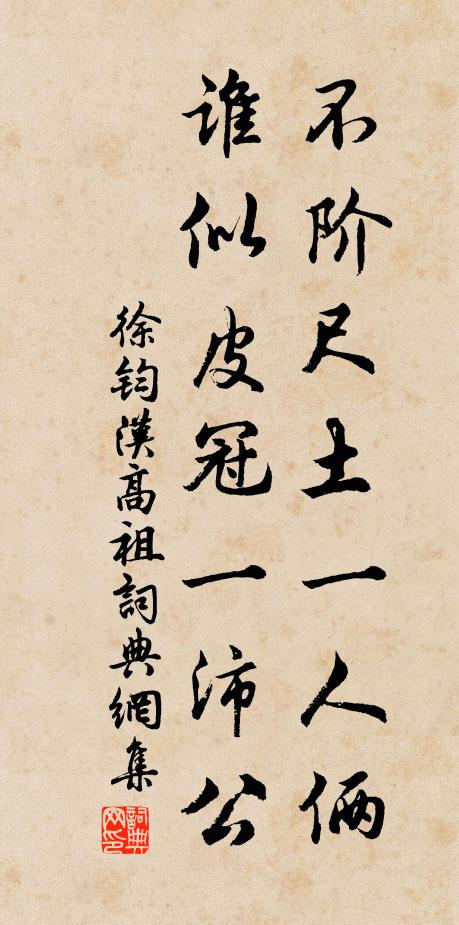 不阶尺土一人俩
谁似皮冠一沛公
徐鈞漢高祖詞典網集
詞典
网印